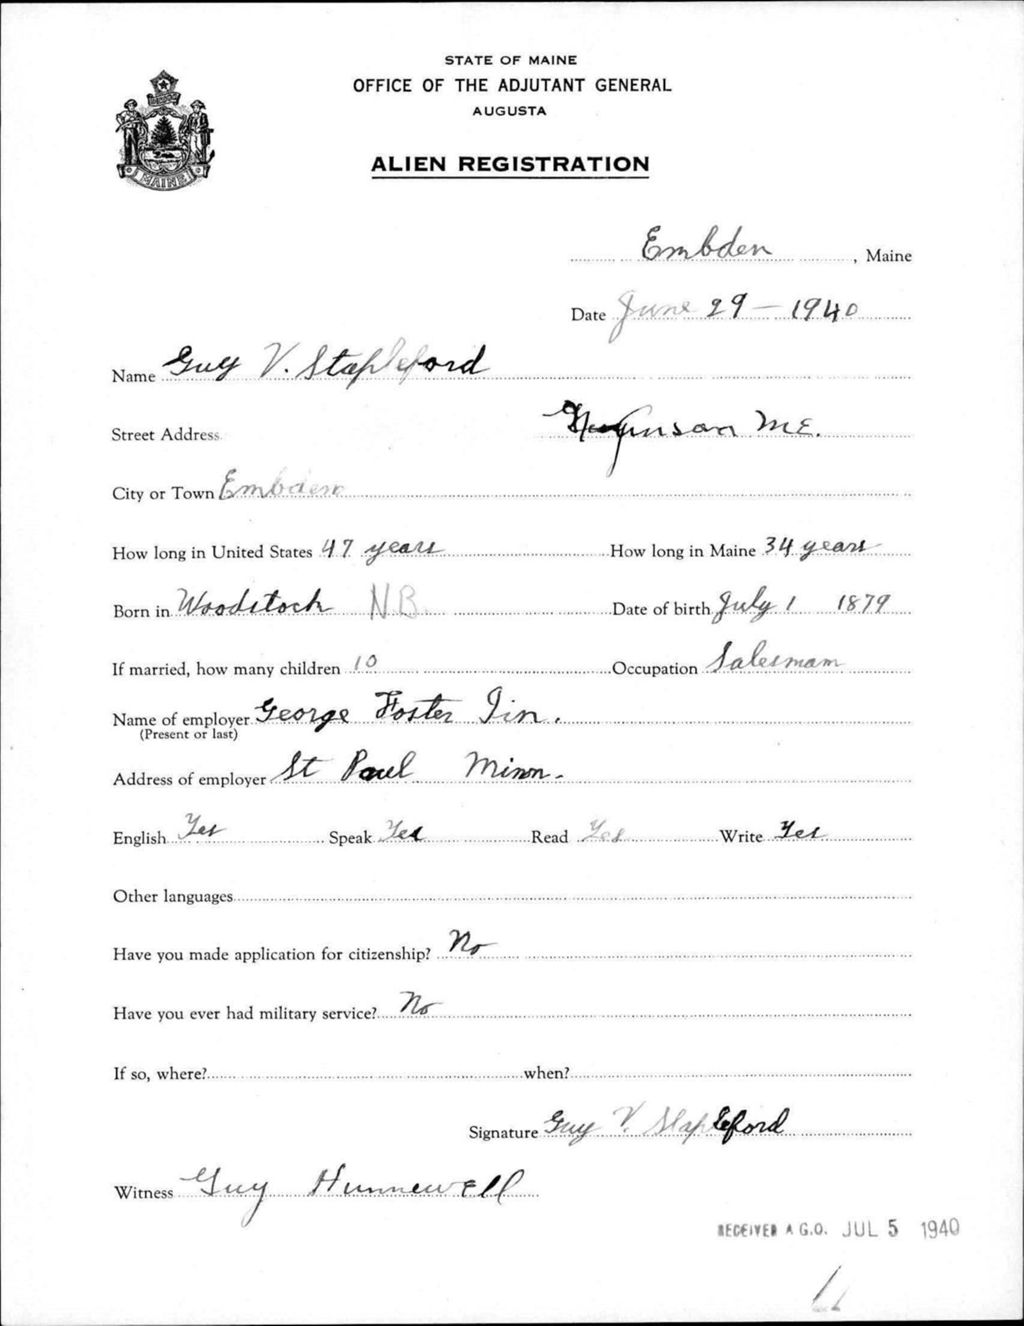 STATE OF MAINE
OFFICE OF THE ADJUTANT GENERAL
AUGUSTA
MAINE
ALIEN REGISTRATION
Embden, Maine
Date June 29 - 1940
Name Guy V. Stapleford
Street Address Me.
City or Town Embden
How long in United States 47 years How long in Maine 34 years
Born in Woodstock N.B. Date of birth July 1 1879
If married, how many children 10 Occupation Salesmam
Name of employer George Foster
(Present or last)
Address of employer St Paul Minn.
English Yes Speak Yes Read Yes Write Yes
Other languages
Have you made application for citizenship? No
Have you ever had military service? No
If so, where? when?
Signature Guy V. Stapleford
Witness Guy Hunnewell
RECEIVED A.G.O. JUL 5 1940